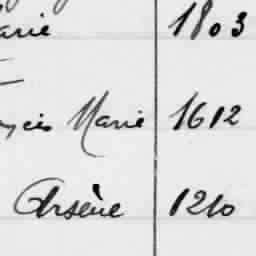 arie 1803
Marie 1612
Arsène 1210